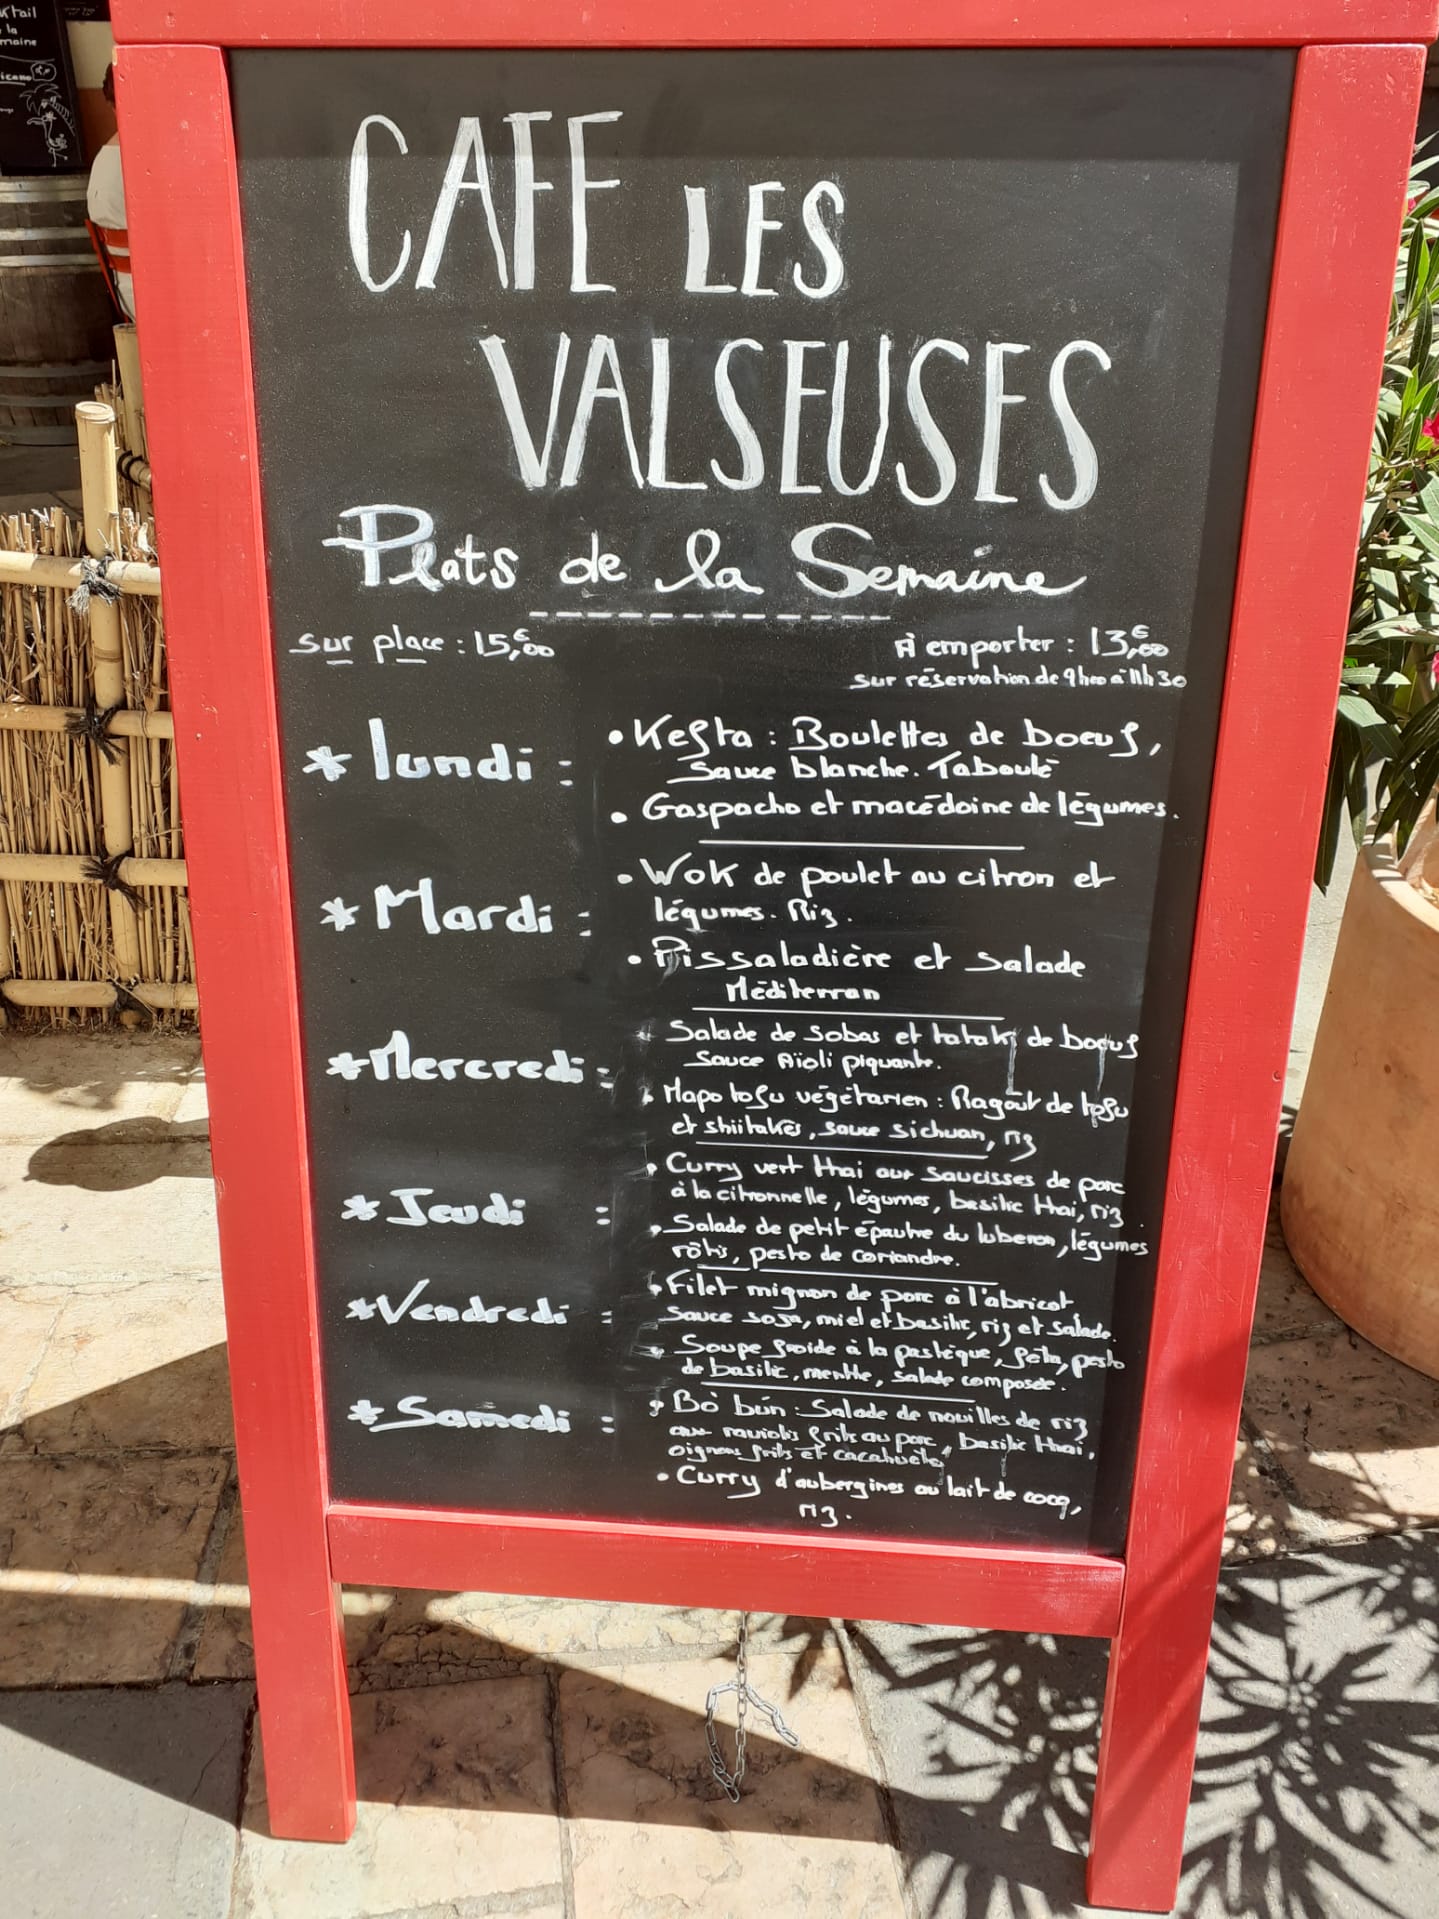 ktail
la
maine
CAFE LES
VALSEUSES
Plats de la Semaine
sur place : 15,€00
À emporter : 13,€00
sur réservation de 9h00 à 11h30
* lundi :
• Kefta : Boulettes de boeuf,
Sauce blanche. Taboulé
• Gaspacho et macédoine de légumes.
* Mardi :
• Wok de poulet au citron et
légumes. Riz.
• Pissaladière et Salade
Méditerran
* Mercredi :
• Salade de Sobas et tataki de boeuf
Sauce Aïoli piquante.
• Mapo tofu végétarien : Ragoût de tofu
et shiitakés, sauce sichuan, riz
* Jeudi :
• Curry vert thai aux saucisses de porc
à la citronnelle, légumes, basilic thai, riz.
• Salade de petit épautre du luberon, légumes
rôtis, pesto de coriandre.
* Vendredi :
• Filet mignon de porc à l'abricot
Sauce soja, miel et basilic, riz et salade.
• Soupe froide à la pastèque, féta, pesto
de basilic, menthe, salade composée.
* Samedi :
• Bò bún : Salade de nouilles de riz
aux raviolis frits au porc, basilic thai,
oignons frits et cacahuète
• Curry d'aubergines au lait de coco,
riz.